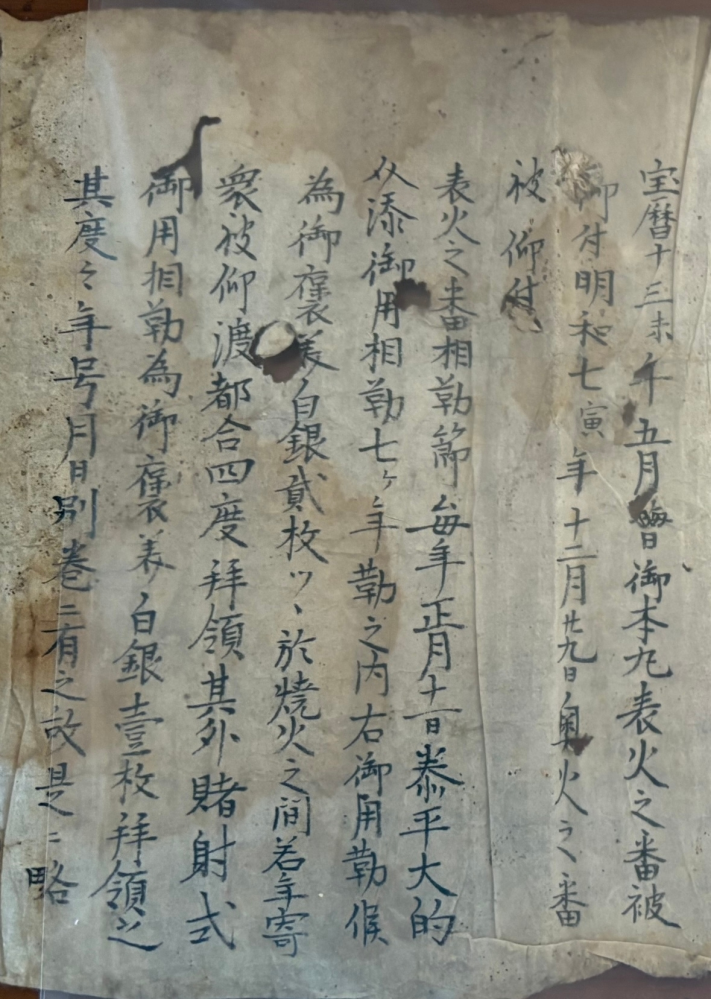 宝暦十三未年五月晦日御本丸表火之番被
仰付明和七寅年十二月廿九日奥火之番
被仰付
表火之番相勤節毎年正月十一日泰平大的
奴添御用相勤七ヶ年勤之内右御用勤候
為御褒美白銀貳枚ツヽ於燒火之間若年寄
衆被仰渡都合四度拜領其外賭射式
御用相勤為御褒美白銀壹枚拜領之
其度々年号月日別巻ニ有之故是ニ略